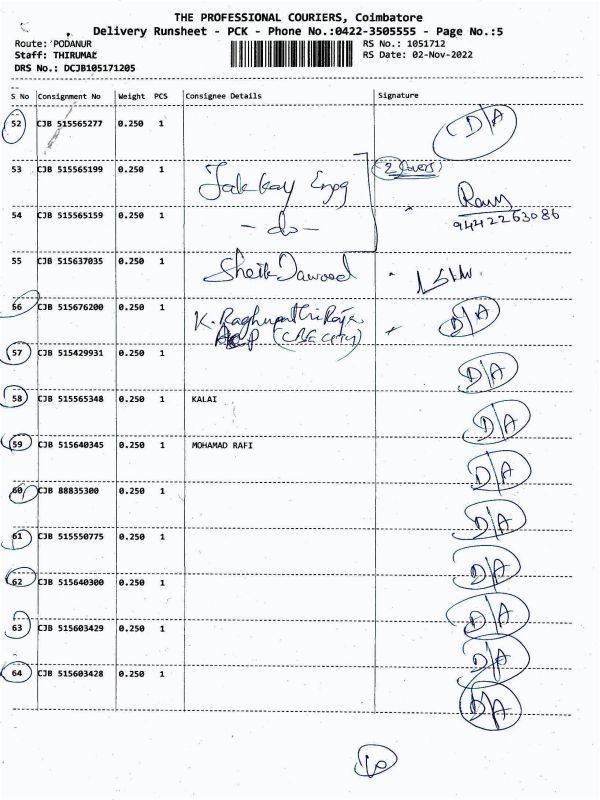 THE PROFESSIONAL COURIERS, Coimbatore
Delivery Runsheet - PCK - Phone No.:0422-3505555 - Page No.:5
Route: PODANUR RS No.: 1051712
Staff: THIRUMAL RS Date: 02-Nov-2022
DRS No.: DCJB105171205
S No Consignment No Weight PCS Consignee Details Signature
52 CJB 515565277 0.250 1 D/A
53 CJB 515565199 0.250 1 (2 Covers)
54 CJB 515565159 0.250 1 - do - 9442263086
55 CJB 515637035 0.250 1 Sheik Dawood
56 CJB 515676200 0.250 1 K. Raghunathi Raja D/A
(CBE CITY)
57 CJB 515429931 0.250 1 D/A
58 CJB 515565348 0.250 1 KALAI D/A
59 CJB 515640345 0.250 1 MOHAMAD RAFI D/A
60 CJB 88835300 0.250 1 D/A
61 CJB 515550775 0.250 1 D/A
62 CJB 515640300 0.250 1 D/A
63 CJB 515603429 0.250 1 D/A
64 CJB 515603428 0.250 1 D/A
D/A
10